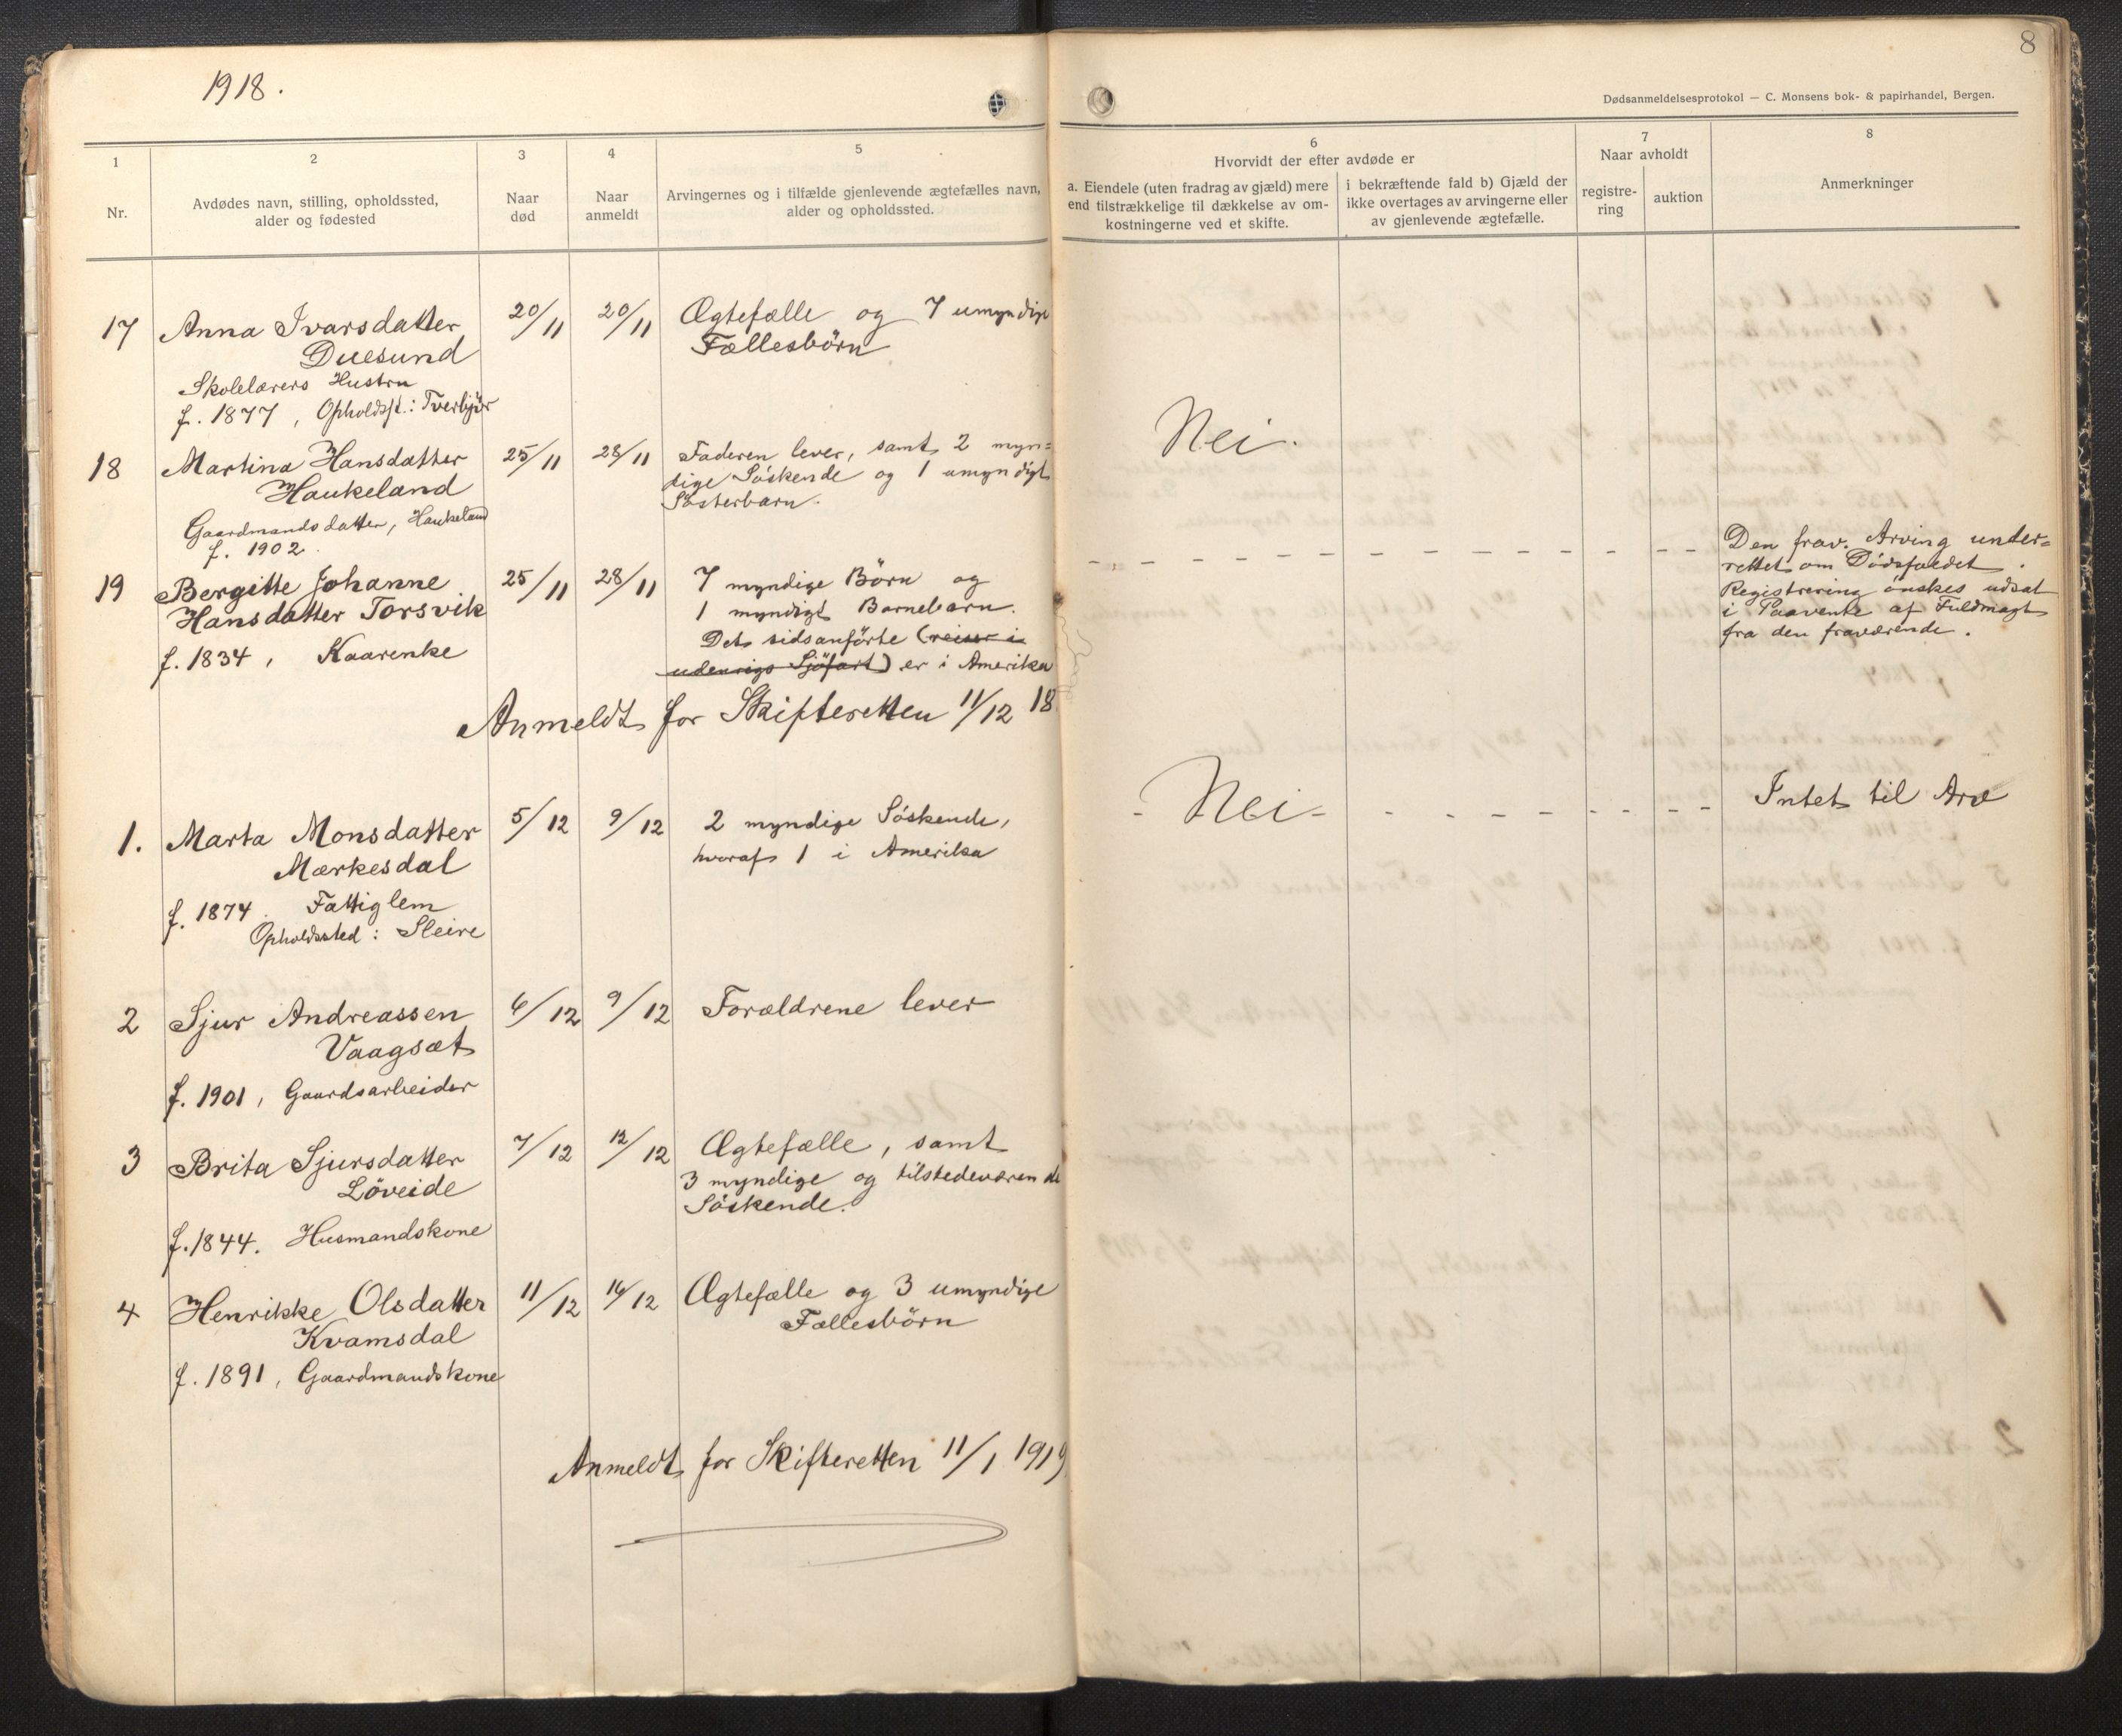 1918.
8
Dødsanmeldelsesprotokol — C. Monsens bok- & papirhandel, Bergen.
1
Nr.
2
Avdødes navn, stilling, opholdssted,
alder og fødested
3
Naar
død
4
Naar
anmeldt
5
Arvingernes og i tilfælde gjenlevende ægtefælles navn,
alder og opholdssted.
6
Hvorvidt der efter avdøde er
a. Eiendele (uten fradrag av gjæld) mere
end tilstrækkelige til dækkelse av om-
kostningerne ved et skifte.
i bekræftende fald b) Gjæld der
ikke overtages av arvingerne eller
av gjenlevende ægtefælle.
7
Naar avholdt
registre-
ring
auktion
8
Anmerkninger
17 Anna Ivarsdatter 20/11 20/11 Ægtefælle og 7 umyndige
Duesund Fællesbörn
Skolelærers Hustru
f. 1877, Opholdsst.:
Nei.
18 Martina Hansdatter 25/11 28/11 Faderen lever, samt 2 myn=
Haukeland dige Söskende og 1 umyndigt
Gaardmandsdatter, Haukeland Sösterbarn.
f. 1902.
19 Bergitte Johanne 25/11 28/11 7 myndige Börn og
Hansdatter Torsvik 1 myndigt Barnebarn.
f. 1834, Kaarenke Det sidsanförte (reiser i
udenrigs Sjöfart) er i Amerika
Den frav. Arving under=
rettet om Dödsfaldet.
Registrering önskes udsat
i Paavente af Fuldmagt
fra den fraværende.
Anmeldt for Skifteretten 11/12 18
1. Marta Monsdatter 5/12 9/12 2 myndige Söskende,
Mærkesdal hvoraf 1 i Amerika
f. 1874. Fattiglem
Opholdssted: Sleire
Nei Intet til Arv
2 Sjur Andreassen 6/12 9/12 Forældrene lever
Vaagsæt
f. 1901, Gaardsarbeider
3 Brita Sjursdatter 7/12 12/12 Ægtefælle, samt
Löveide 3 myndige og tilstedeværende
f. 1844. Husmandskone Söskende.
4 Henrikke Olsdatter 11/12 16/12 Ægtefælle og 3 umyndige
Kvamsdal Fællesbörn
f. 1891, Gaardmandskone
Anmeldt for Skifteretten 11/1 1919